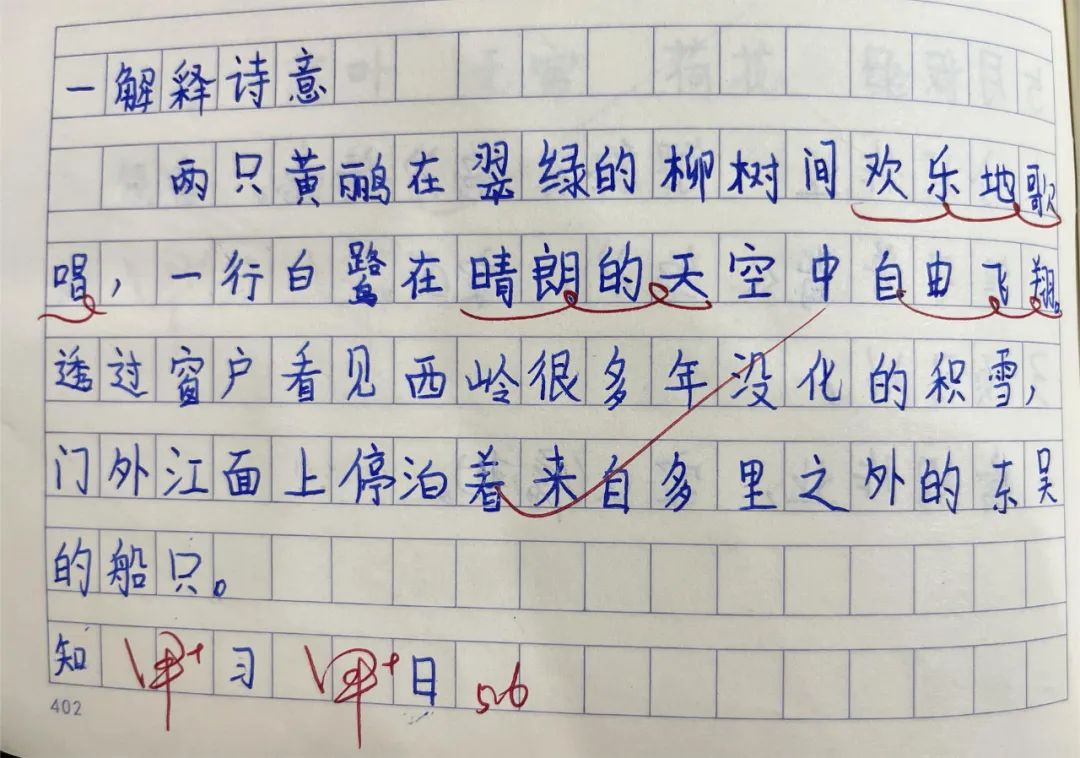 一解释诗意
两只黄鹂在翠绿的柳树间欢乐地歌
唱，一行白鹭在晴朗的天空中自由飞翔。
透过窗户看见西岭很多年没化的积雪，
门外江面上停泊着来自多里之外的东吴
的船只。
知 甲+ 习 甲+ 日 5.6
402